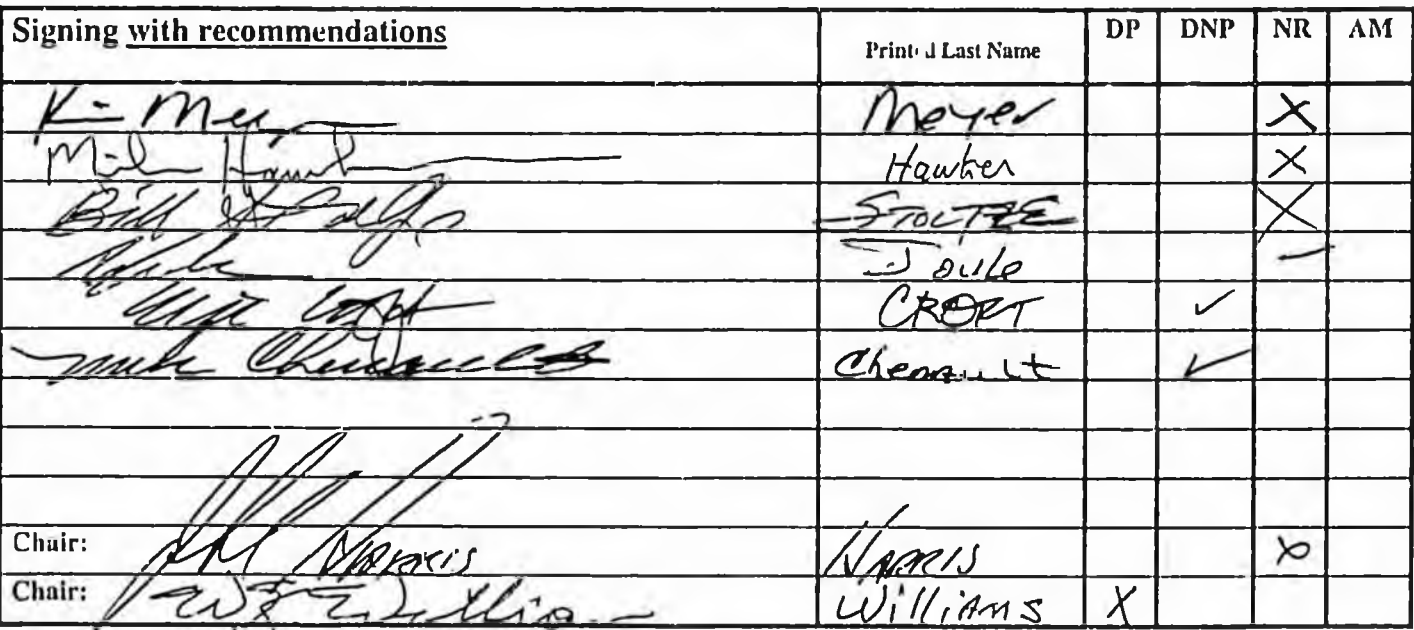 Signing with recommendations Printed Last Name DP DNP NR AM
Meyer X
Mike Hawker X
Bill STOLTZE X
Joule
CROFT ✓
Mike Chenault Chenault ✓
Chair: HARRIS HARRIS X
Chair: Williams Williams X